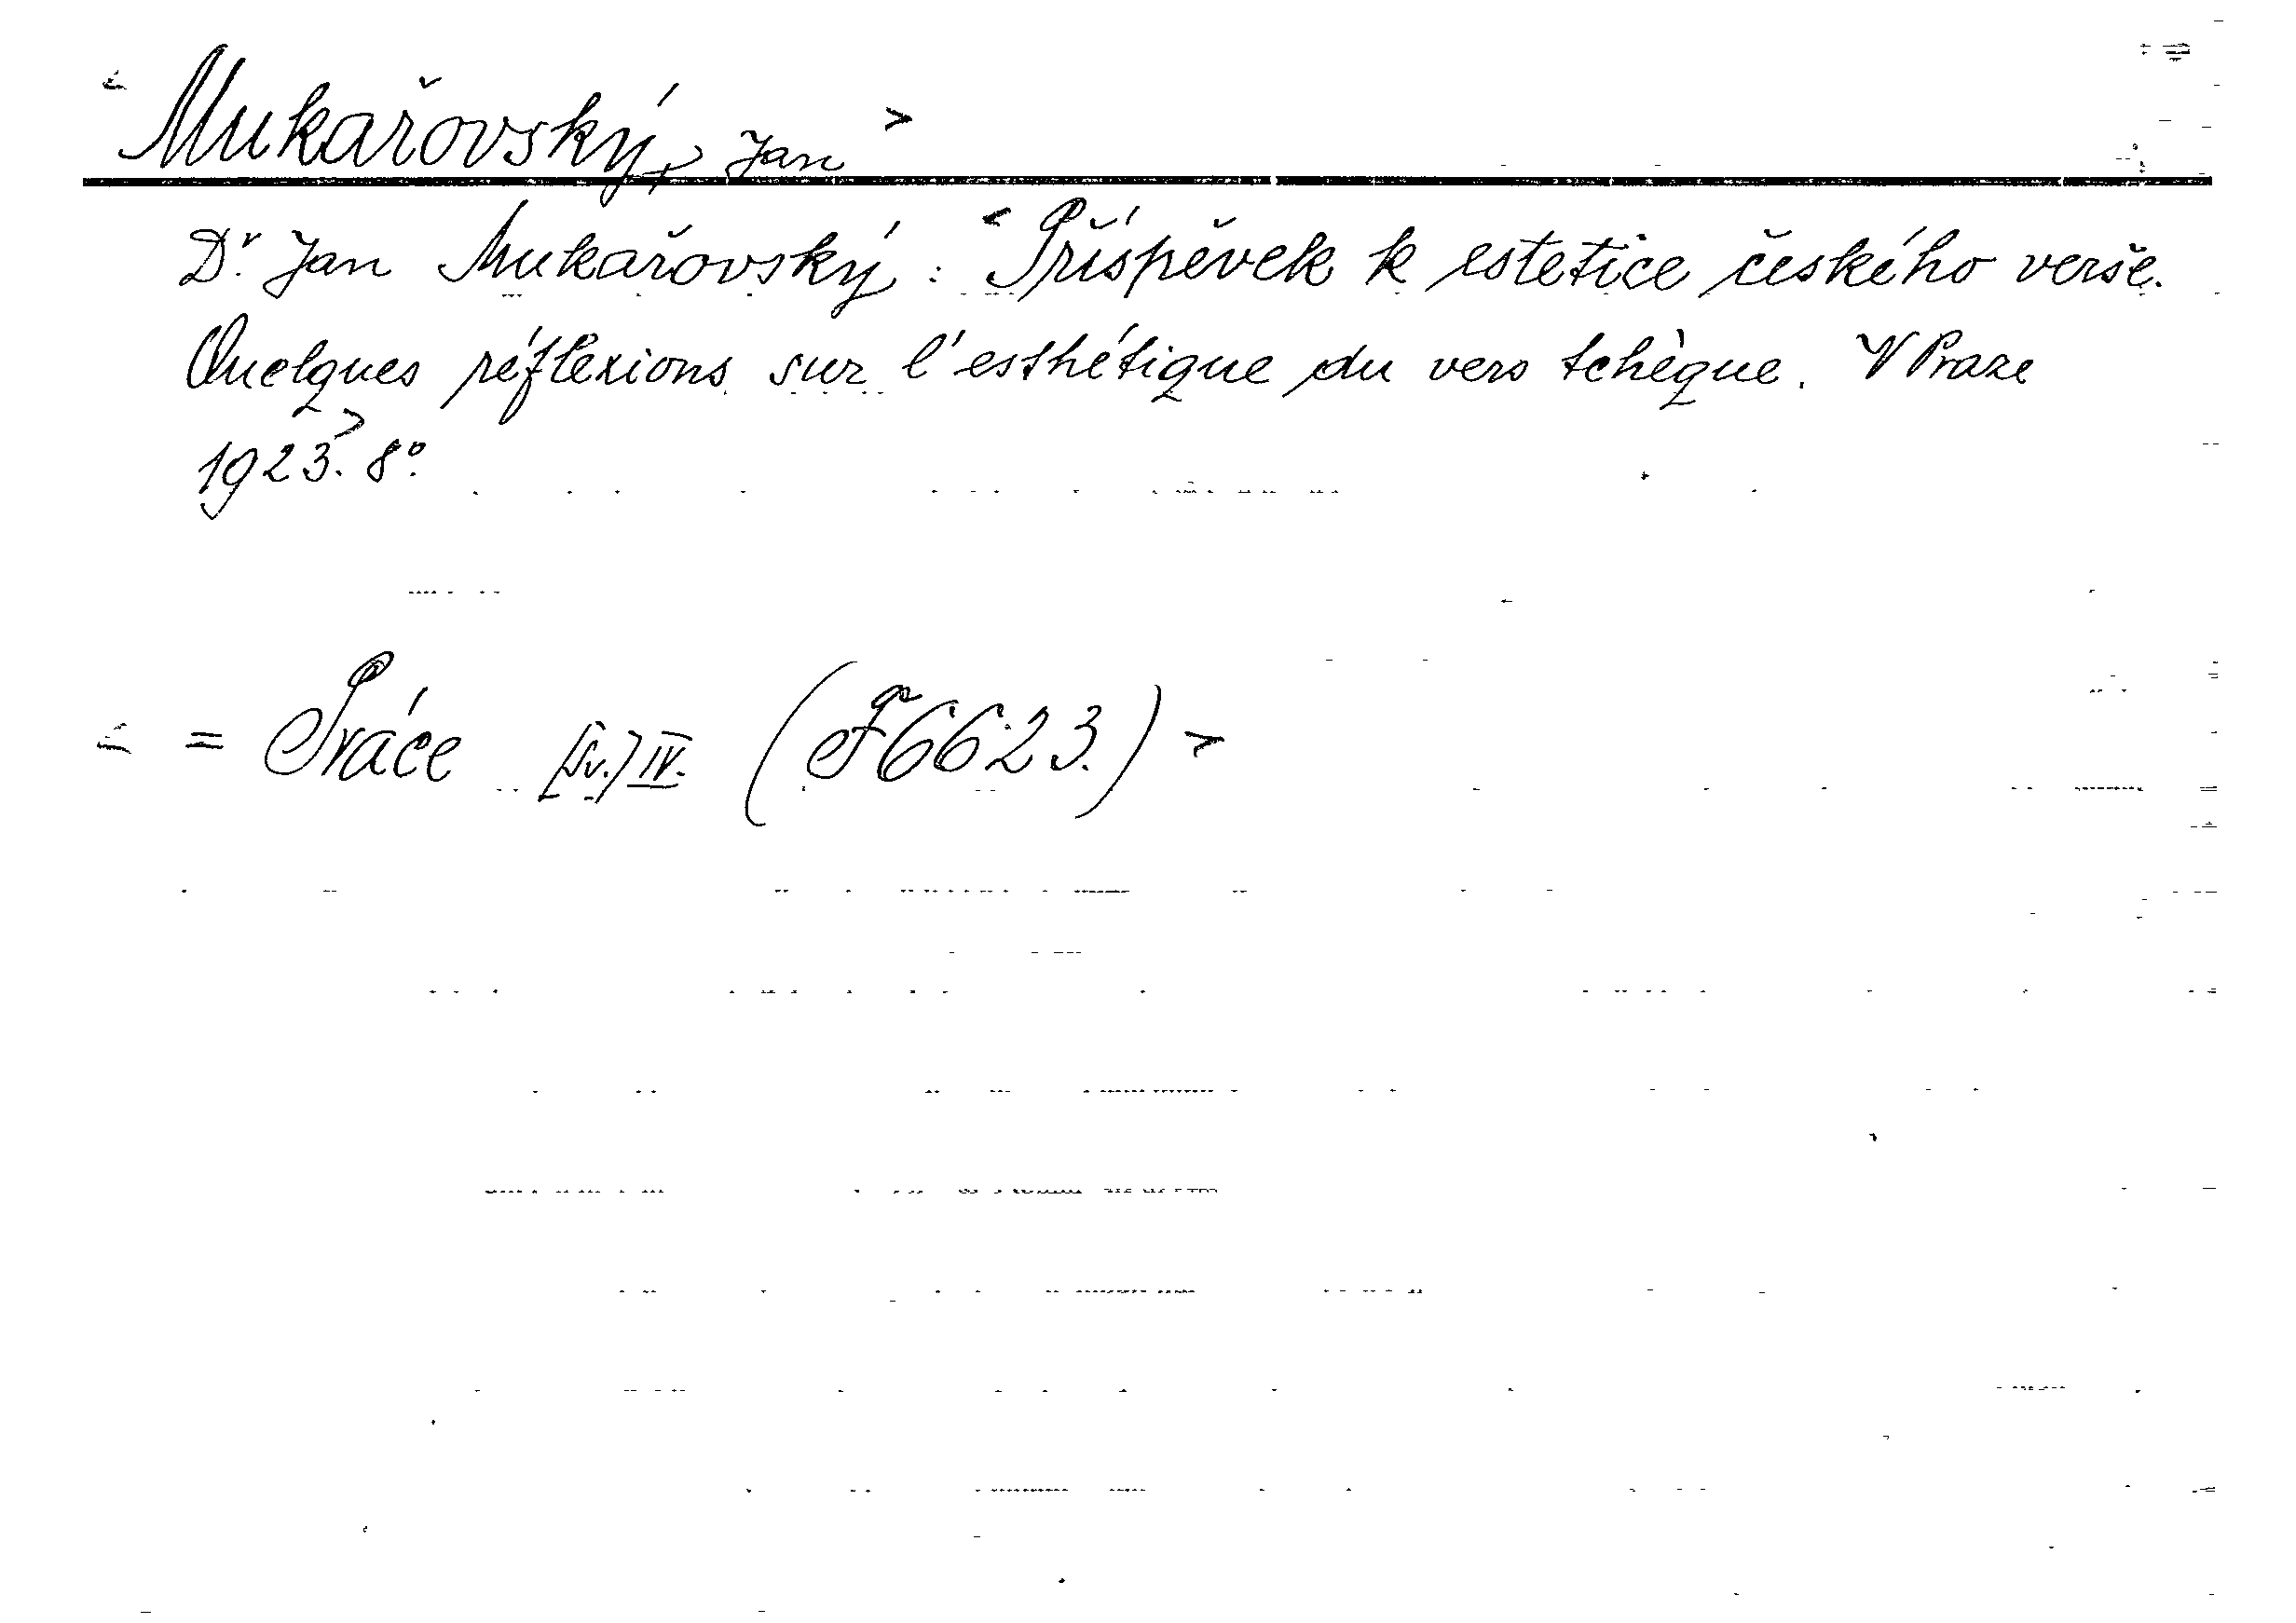 < Mukařovský, Jan >
Dr. Jan Mukařovský: < Příspěvek k estetice českého verše.
Quelques réflexions sur l'esthétique du vers tchèque. V Praze
1923.> 8°.
< = Práce [Sv.] IV. (F6623.) >